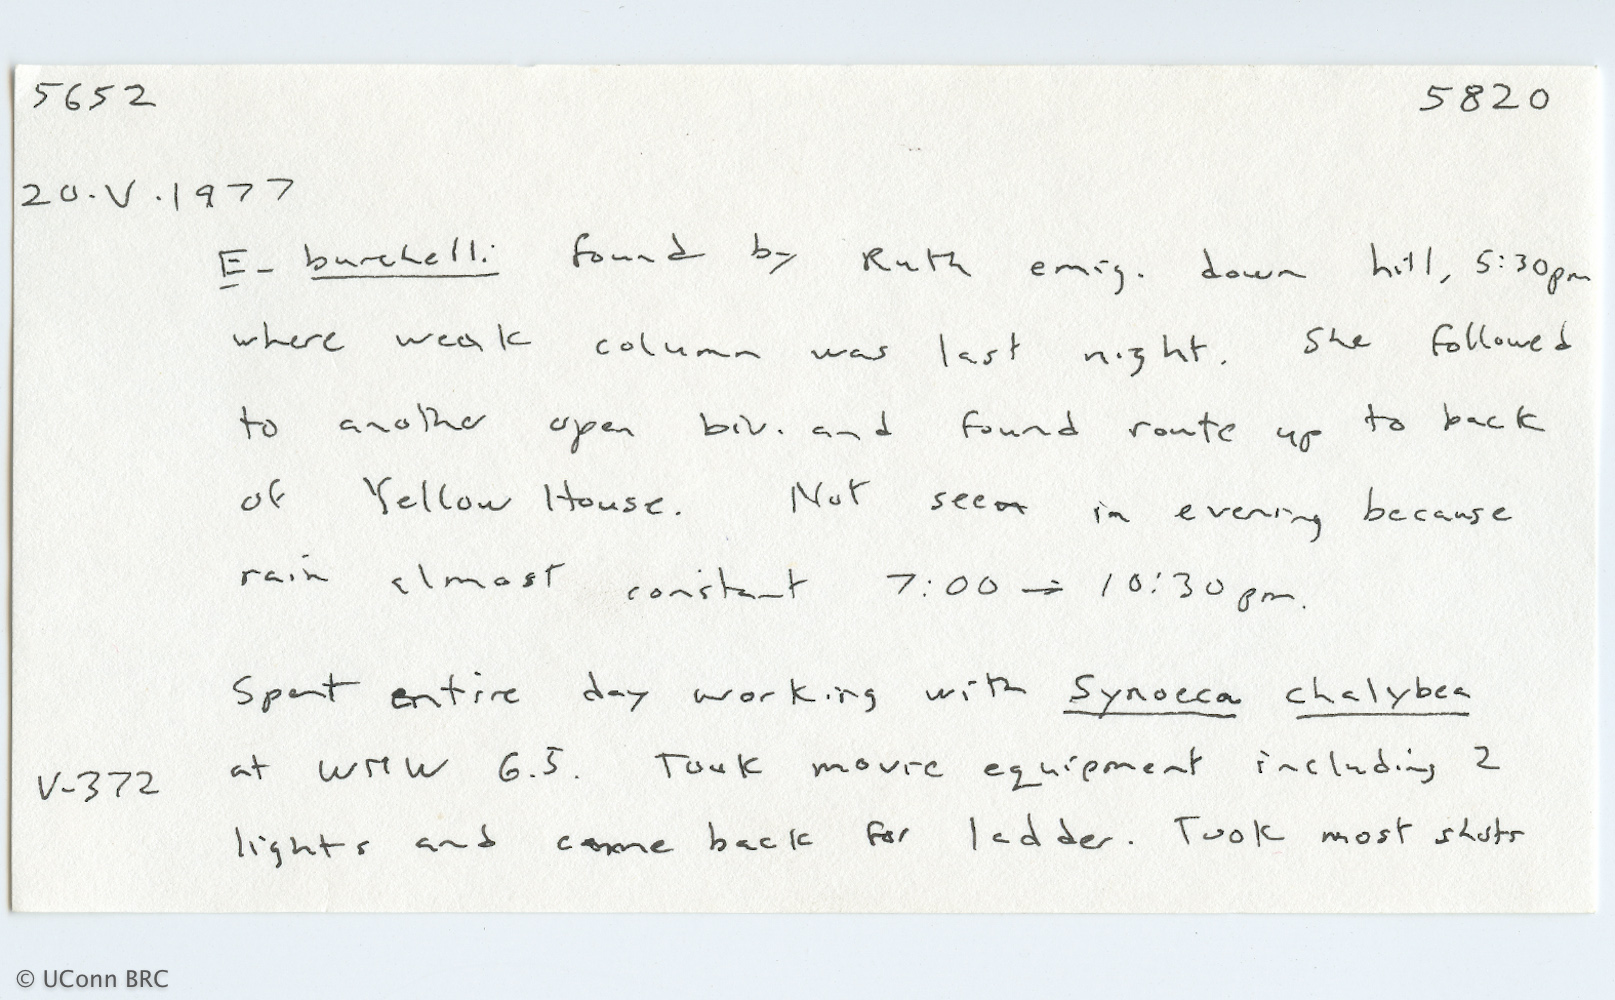 5652 5820
20.V.1977
E. burchelli found by Ruth emig. down hill, 5:30pm
where weak column was last night. She followed
to another open biv. and found route up to back
of Yellow House. Not seen in evening because
rain almost constant 7:00 → 10:30 pm.
Spent entire day working with Synoeca chalybea
V-372 at WMW 6.5. Took movie equipment including 2
lights and came back for ladder. Took most shots
© UConn BRC